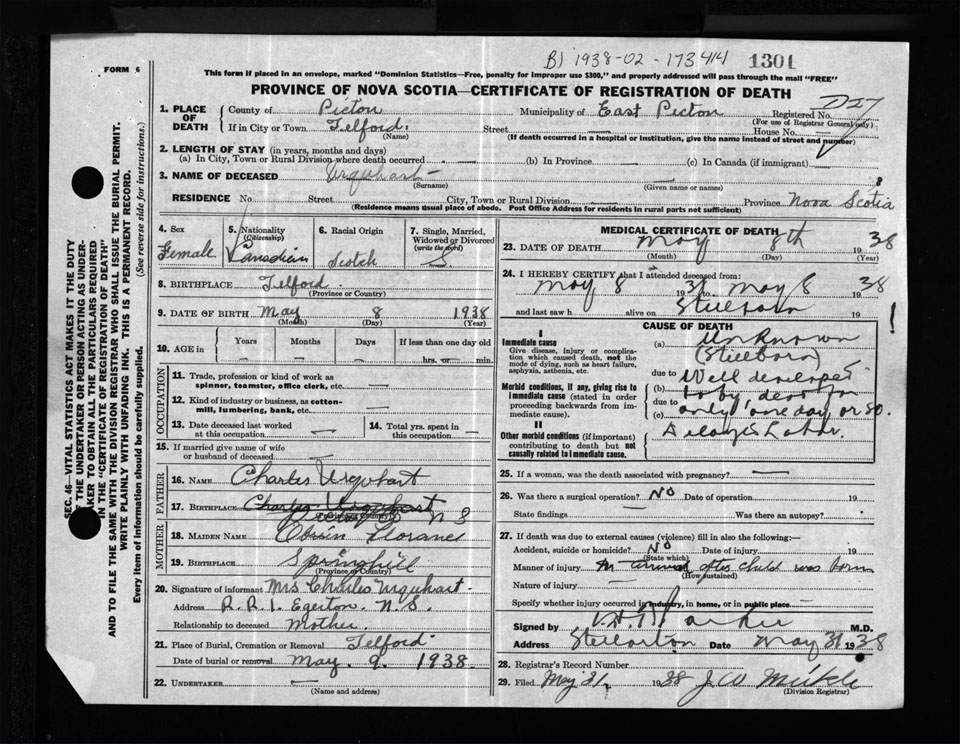 B) 1938-02-173414 1301
FORM 6
This form if placed in an envelope, marked "Dominion Statistics—Free, penalty for improper use $300," and properly addressed will pass through the mail "FREE"
PROVINCE OF NOVA SCOTIA—CERTIFICATE OF REGISTRATION OF DEATH
1. PLACE OF DEATH
County of Picton Municipality of East Picton Registered No. D27
(For use of Registrar General only)
If in City or Town Telford. Street — House No. —
(Name) (If death occurred in a hospital or institution, give the name instead of street and number)
2. LENGTH OF STAY (in years, months and days)
(a) In City, Town or Rural Division where death occurred — (b) In Province — (c) In Canada (if immigrant)
3. NAME OF DECEASED Urquhart —
(Surname) (Given name or names)
RESIDENCE No. Street City, Town or Rural Division — Province Nova Scotia
(Residence means usual place of abode. Post Office Address for residents in rural parts not sufficient)
4. Sex
Female
5. Nationality
(Citizenship)
Canadian
6. Racial Origin
Scotch
7. Single, Married, Widowed or Divorced
(write the word)
S.
8. BIRTHPLACE Telford.
(Province or Country)
9. DATE OF BIRTH May 8 1938
(Month) (Day) (Year)
10. AGE in
Years Months Days If less than one day old
— — — hrs. or min.
OCCUPATION
11. Trade, profession or kind of work as spinner, teamster, office clerk, etc. —
12. Kind of industry or business, as cotton-mill, lumbering, bank, etc. —
13. Date deceased last worked at this occupation —
14. Total yrs. spent in this occupation —
15. If married give name of wife or husband of deceased —
FATHER
16. NAME Charles Urquhart
17. BIRTHPLACE Charles Urquhart N S
(Province or Country)
MOTHER
18. MAIDEN NAME
19. BIRTHPLACE Springhill
(Province or Country)
20. Signature of informant Mrs Charles Urquhart.
Address R. R. 1. Egerton. N.S.
Relationship to deceased Mother.
21. Place of Burial, Cremation or Removal Telford
Date of burial or removal May. 9. 1938.
22. UNDERTAKER —
(Name and address)
MEDICAL CERTIFICATE OF DEATH
23. DATE OF DEATH May 8th 1938
(Month) (Day) (Year)
24. I HEREBY CERTIFY that I attended deceased from:
May 8 1938 to May 8 1938
and last saw h alive on Stillborn
CAUSE OF DEATH
I
Immediate cause
Give disease, injury or complication which caused death, not the mode of dying, such as heart failure, asphyxia, asthenia, etc.
(a) Unknown
(Stillborn)
due to Well developed
Morbid conditions, if any, giving rise to immediate cause (stated in order proceeding backwards from immediate cause).
(b) baby dead for
due to
(c) only one day or so.
II
Other morbid conditions (if important) contributing to death but not causally related to immediate cause.
25. If a woman, was the death associated with pregnancy? —
26. Was there a surgical operation? No Date of operation 19
State findings Was there an autopsy?
27. If death was due to external causes (violence) fill in also the following:—
Accident, suicide or homicide? No Date of injury 19
(State which)
Manner of injury after child was born
(How sustained)
Nature of injury —
Specify whether injury occurred in industry, in home, or in public place —
Signed by M.D.
Address Stellarton Date May 31 1938
28. Registrar's Record Number
29. Filed May 31, 1938 J W Meikle
(Division Registrar)
SEC. 46—VITAL STATISTICS ACT MAKES IT THE DUTY
OF THE UNDERTAKER OR PERSON ACTING AS UNDER-
TAKER TO OBTAIN ALL THE PARTICULARS REQUIRED
IN THE "CERTIFICATE OF REGISTRATION OF DEATH"
AND TO FILE THE SAME WITH THE DIVISION REGISTRAR WHO SHALL ISSUE THE BURIAL PERMIT.
WRITE PLAINLY WITH UNFADING INK. THIS IS A PERMANENT RECORD.
Every item of information should be carefully supplied. (See reverse side for instructions.)